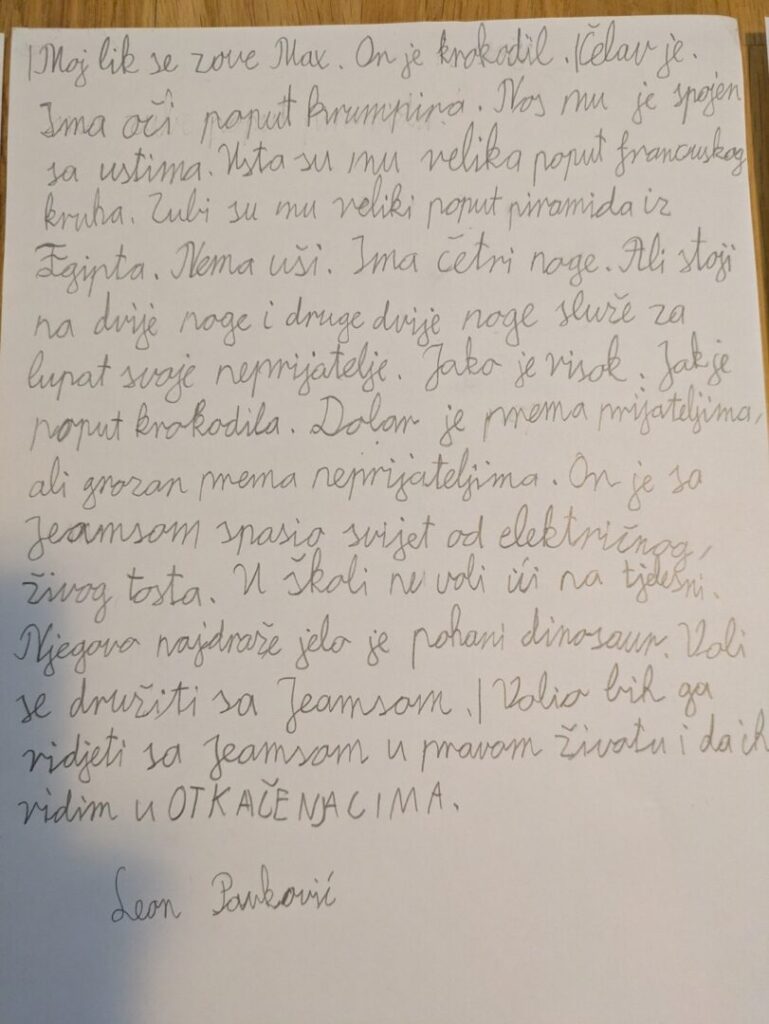 |Moj lik se zove Max. On je krokodil.|Čelav je.
Ima oči poput krumpira. Nos mu je spojen
sa ustima. Usta su mu velika poput francuskog
kruha. Zubi su mu veliki poput piramida iz
Egipta. Nema uši. Ima četri noge. Ali stoji
na dvije noge i druge dvije noge služe za
lupat svoje neprijatelje. Jako je visok. Jak je
poput krokodila. Dobar je prema prijateljima,
ali grozan prema neprijateljima. On je sa
Jeamsom spasio svijet od električnog,
živog tosta. U školi ne voli ići na tjelesni.
Njegovo najdraže jelo je pohani dinosaur. Voli
se družiti sa Jeamsom.|Volio bih ga
vidjeti sa Jeamsom u pravom životu i da ih
vidim u OTKAČENJACIMA.
Leon Pavković